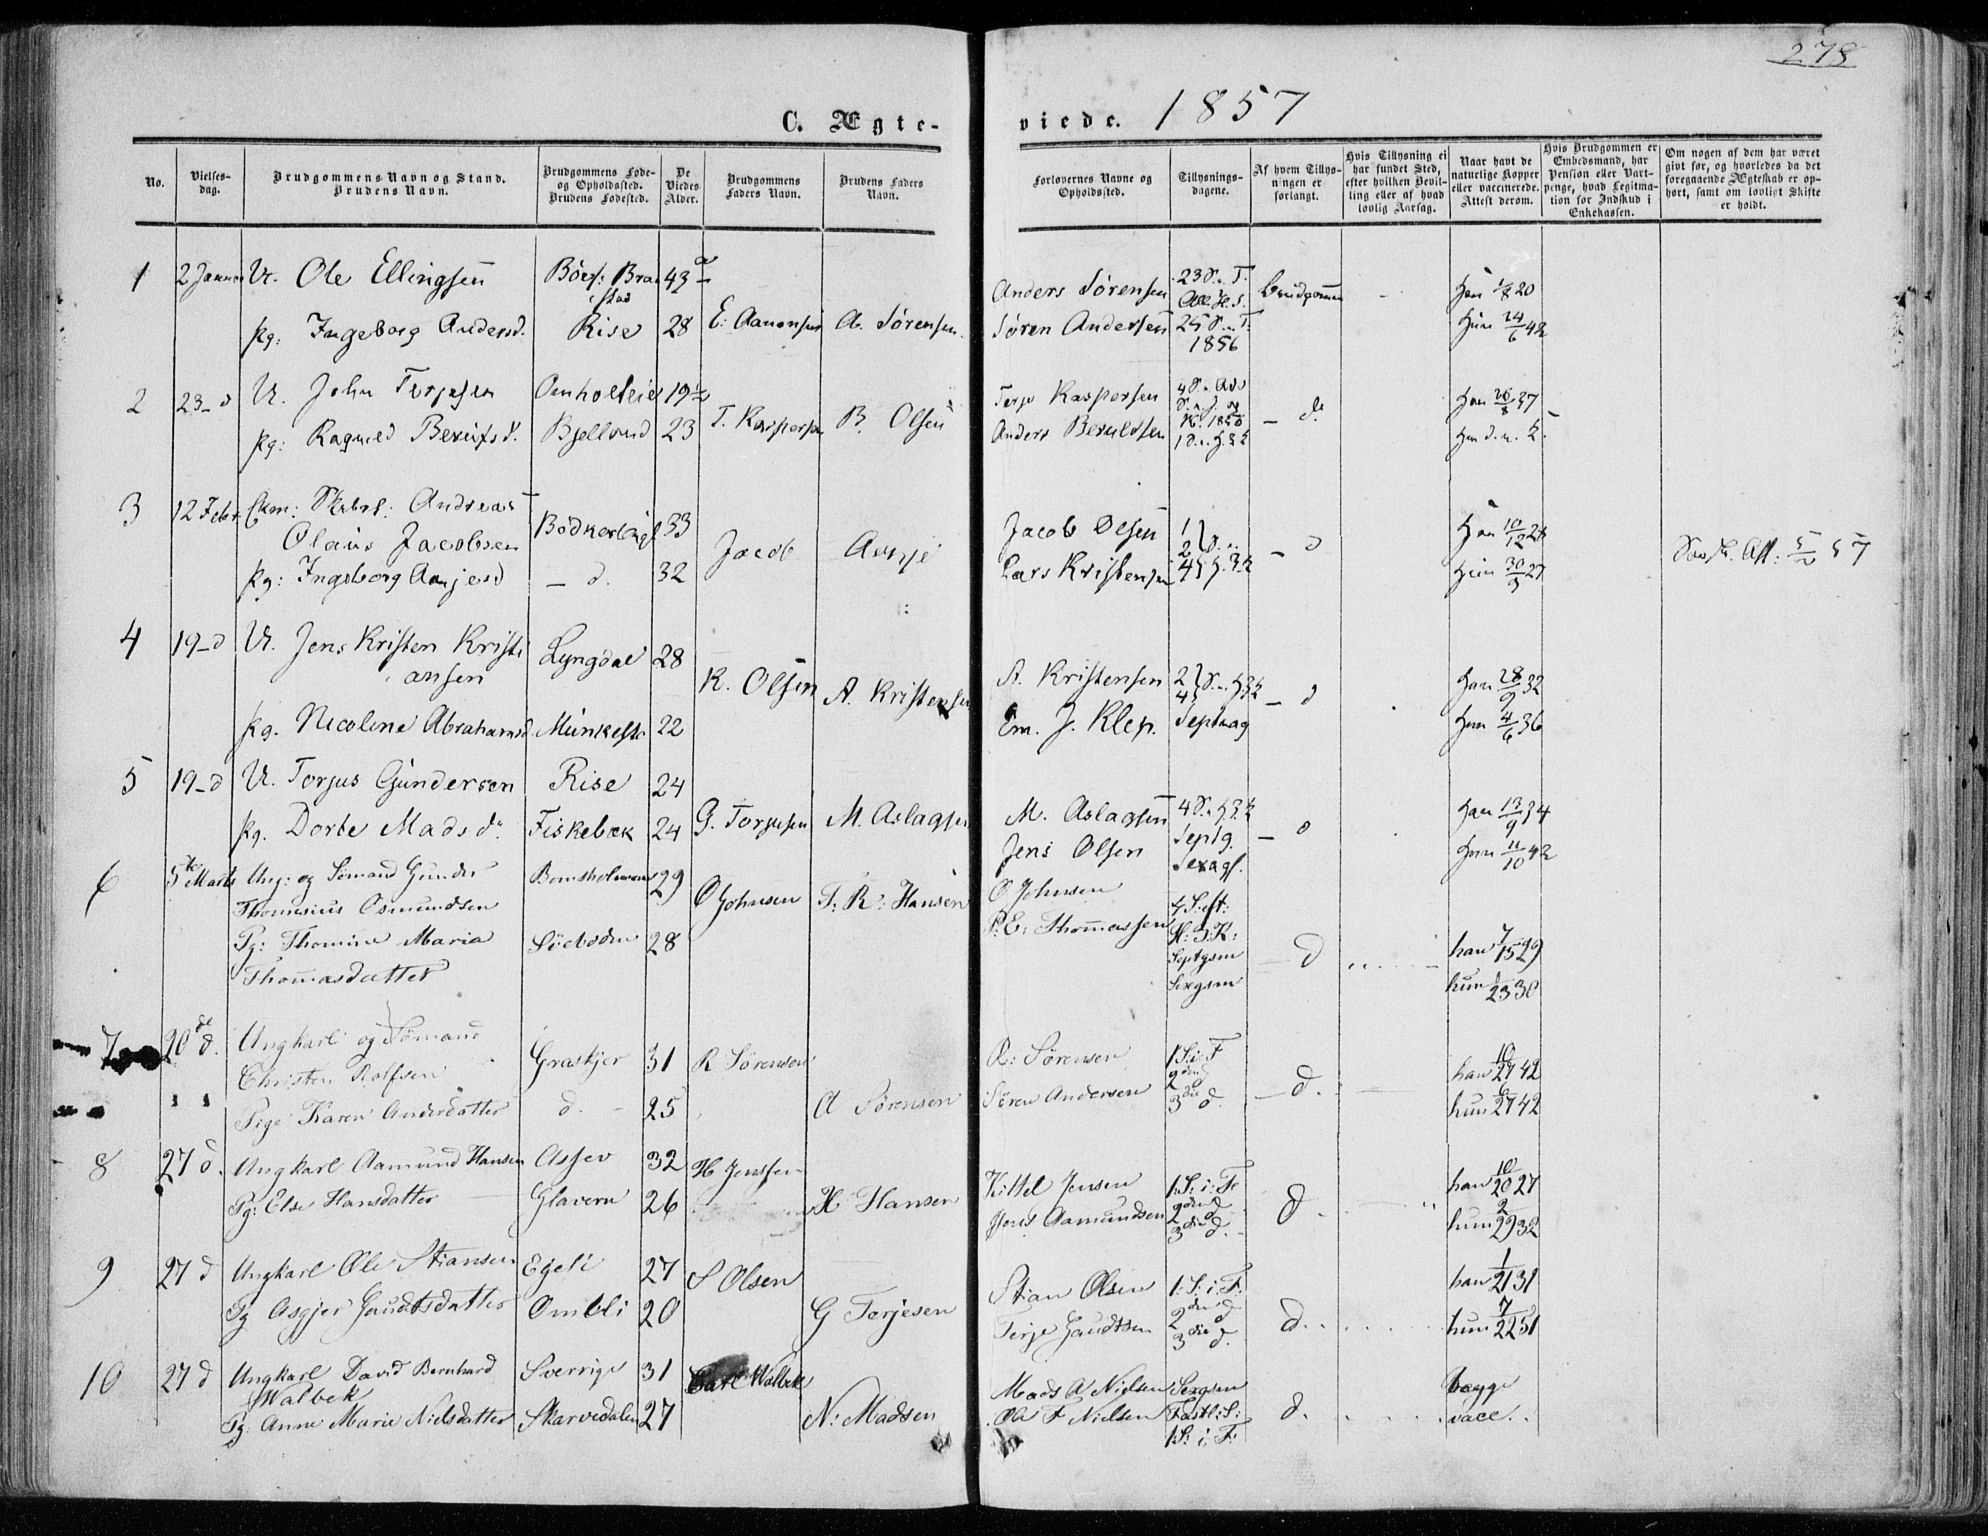 278
C. Ægte-
viede. 1857
No.
Vielses-
dag.
Brudgommens Navn og Stand.
Brudens Navn.
Brudgommens Føde-
og Opholdssted.
Brudens Fødested.
De
Viedes
Alder.
Brudgommens
Faders Navn.
Brudens Faders
Navn.
Forlovernes Navne og
Opholdssted.
Tillysnings-
dagene.
Af hvem Tillys-
ningen er
forlangt.
Hvis Tillysning ei
har fundet Sted,
efter hvilken Bevil-
ling eller af hvad
lovlig Aarsag.
Naar havt de
naturlige Kopper
eller vaccinerede.
Attest derom.
Hvis Brudgommen er
Embedsmand, har
Pension eller Vart-
penge, hvad Legitima-
tion for Indskud i
Enkekassen.
Om nogen af dem har været
givt før, og hvorledes da det
foregaaende Ægteskab er op-
hørt, samt om lovligt Skifte
er holdt.
1 U. Ole Ellingsen 43
Pg: Ingeborg Andersd. Rise 28 E: Aanonsen A. Sørensen
Anders Sørensen 23 S. T. Brudgommen Han 1/8 20
Søren Andersen 25 S. T. 1856 Hun 24/6 42
2 23 d U. John Terjesen Omholteie 19½
Pg: Ragnild Berulfsd. Bjelland 23 T. Kaspersen B. Olsen
Terje Kaspersen 4 S. Adv d. Han 26/8 37
Anders Berulfsen
3 12 Febr. Andreas
Olaus Jacobsen 33
Pg: Ingeborg Aanjesd d. 32 Jacob Aanje
Jacob Olsen d Han 10/12 24
Lars Kristensen Hun 30/9 27
4 19 d U. Jens Kristen Kristi
ansen Lyngdal 28
Pg. Nicoline Abrahamsd. 22 K. Olsen A. Kristensen
A. Kristensen d Han 28/9 32
Em. J. Klep. Septuag Hun 4/6 36
5 19 d U. Torjus Gundersen Rise 24
Pg. Dorte Mads d. Fiskebæk 24 G. Torjusen M. Aslagsen
M. Aslagsen d Han 13/9 34
Jens Olsen Septg. Sexags. Hun 11/10 42
6 5te Marts Ung: og Sømand Gunder 29
Thomesius Osmundsen
Pg: Thomine Maria 28
Thomasdatter
O Johnsen T: R: Hansen
O Johnsen 4 S. eft:
P: E: Thommassen H: 3 K:
Septgsm d han 7/15 29
Sexgsm hun 23 30
7 20de d. Ungkarl og Sømand
Christen Rolfsen Graskjer 31 R Sørensen
Pige Karen Andersdatter d. 25 A Sørensen
R: Sørensen 1 S: i: F han 10/27 42
Søren Andersen 2den d 3die d. d. hun 6/27 42
8 27 d. Ungkarl Aamund Hansen Assev 32 H Jenssen
Pg: Else Hansdatter Glavern 26 H Hansen
Kittel Jensen 1: S: i: F. han 10/20 27
Aamundsen 2den d 3die d. d hun 2/29 32
9 27 d Ungkarl Ole Stiansen Egeli 27 S Olsen
Pg Asgjer Gaudtsdatter Ombli 20 G Terjesen
Stian Olsen 1: S: i: F: han 1/21 31
Terje Gaudtsen 2den d 3die d. d. hun 7/22 51
10 27 d Ungkarl David Bernhard Sverrige 31 Carl Walbek
Walbek
Pg. Anne Marie Nielsdatter Skarvedalen 27 N: Madsen
Mads A Nielsen Sexgsm begge
Ole F Nielsen Fastl: S: d. vacc.
1 S: i: F: